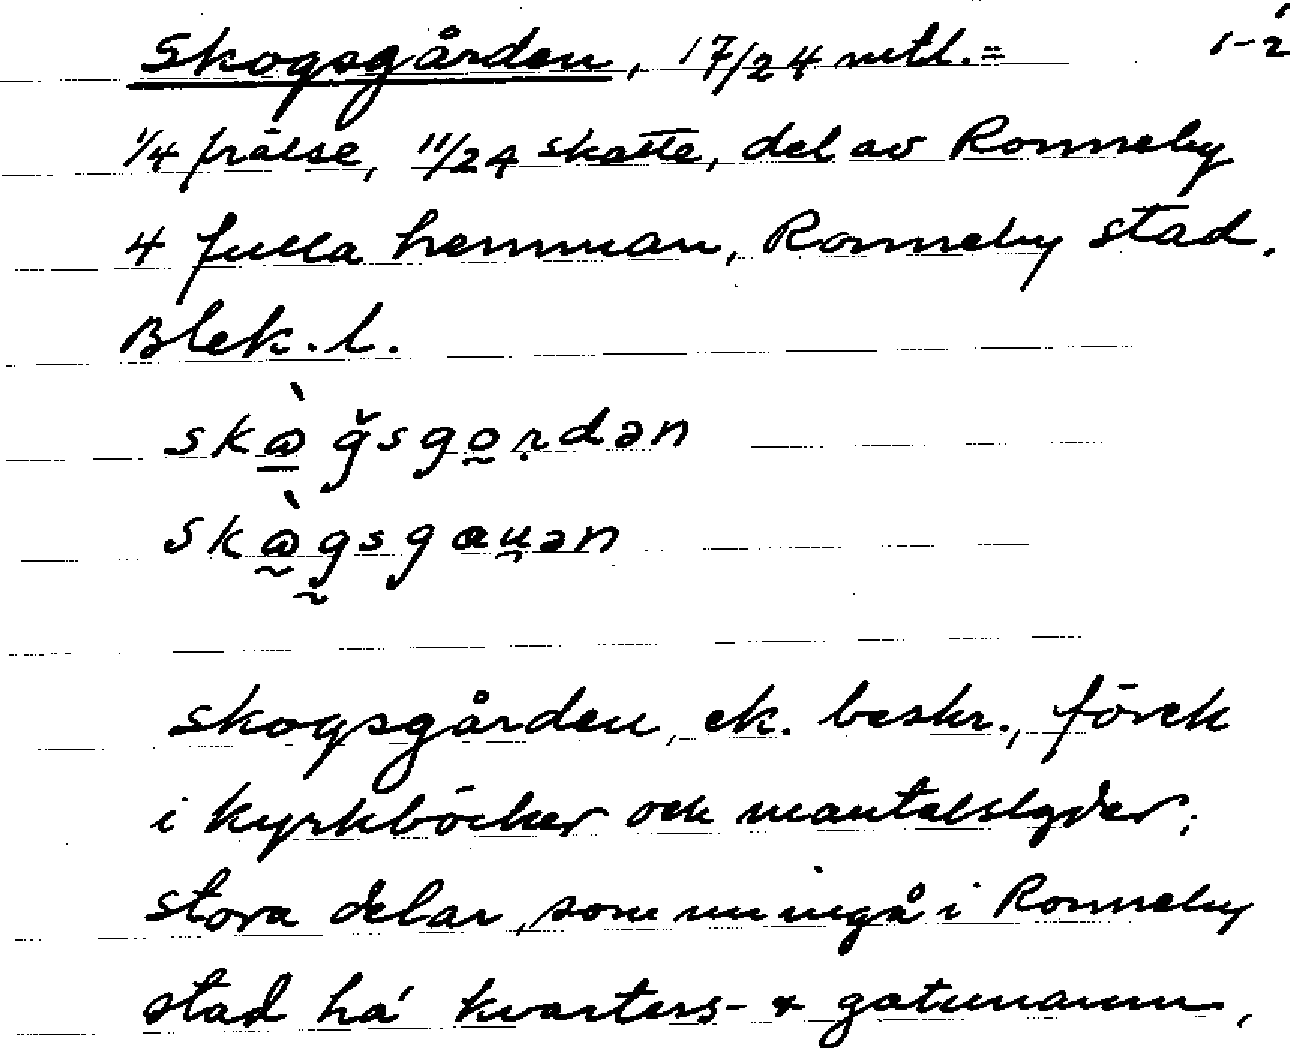 Skogsgården, 17/24 mtl. = 1-2
1/4 frälse, 11/24 skatte, del av Ronneby
4 fulla hemman, Ronneby stad.
Blek. l.
skògsgordən
skògsgauən
Skogsgården, ek. beskr., förek
i kyrkböcker och mantalslgder;
stora delar, som nu ingå i Ronneby
stad ha kvarters- & gatunamn,